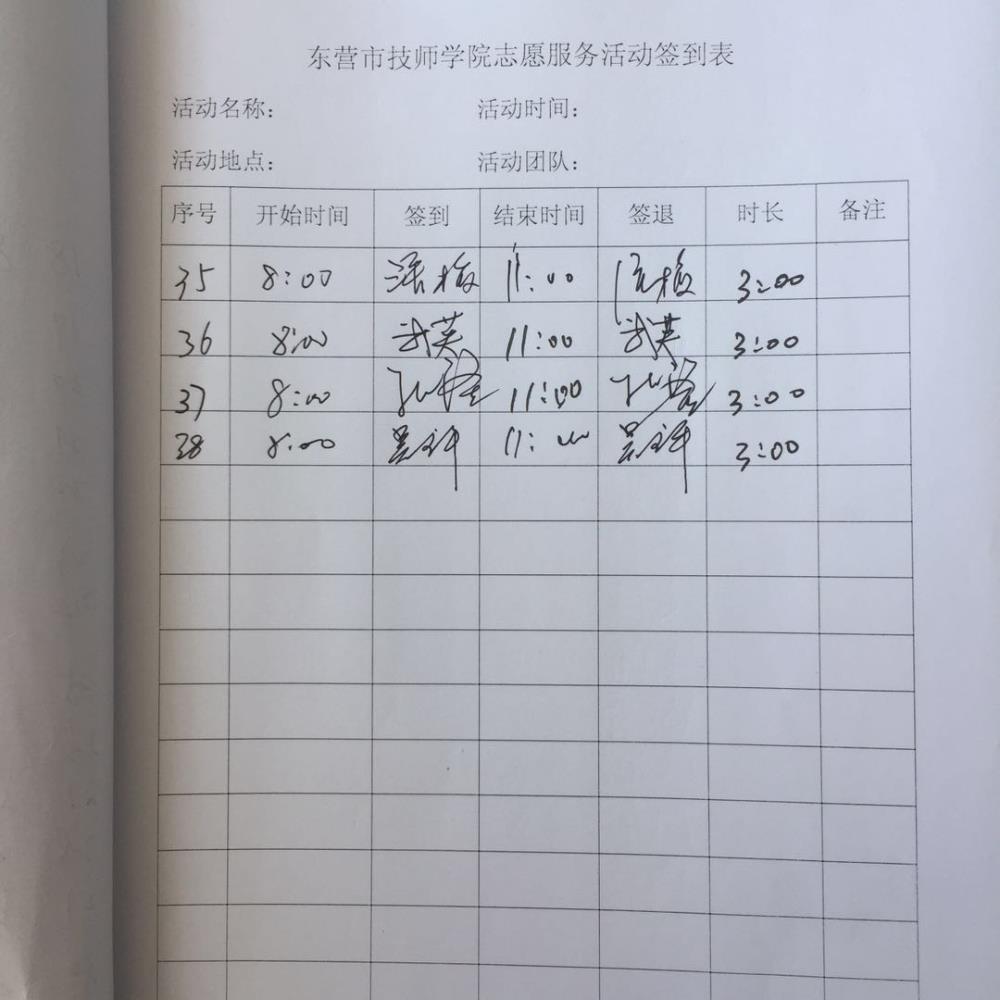 东营市技师学院志愿服务活动签到表
活动名称： 活动时间：
活动地点： 活动团队：
序号 开始时间 签到 结束时间 签退 时长 备注
35 8:00 11:00 3:00
36 8:00 武英 11:00 武英 3:00
37 8:00 11:00 3:00
38 8:00 11:00 3:00